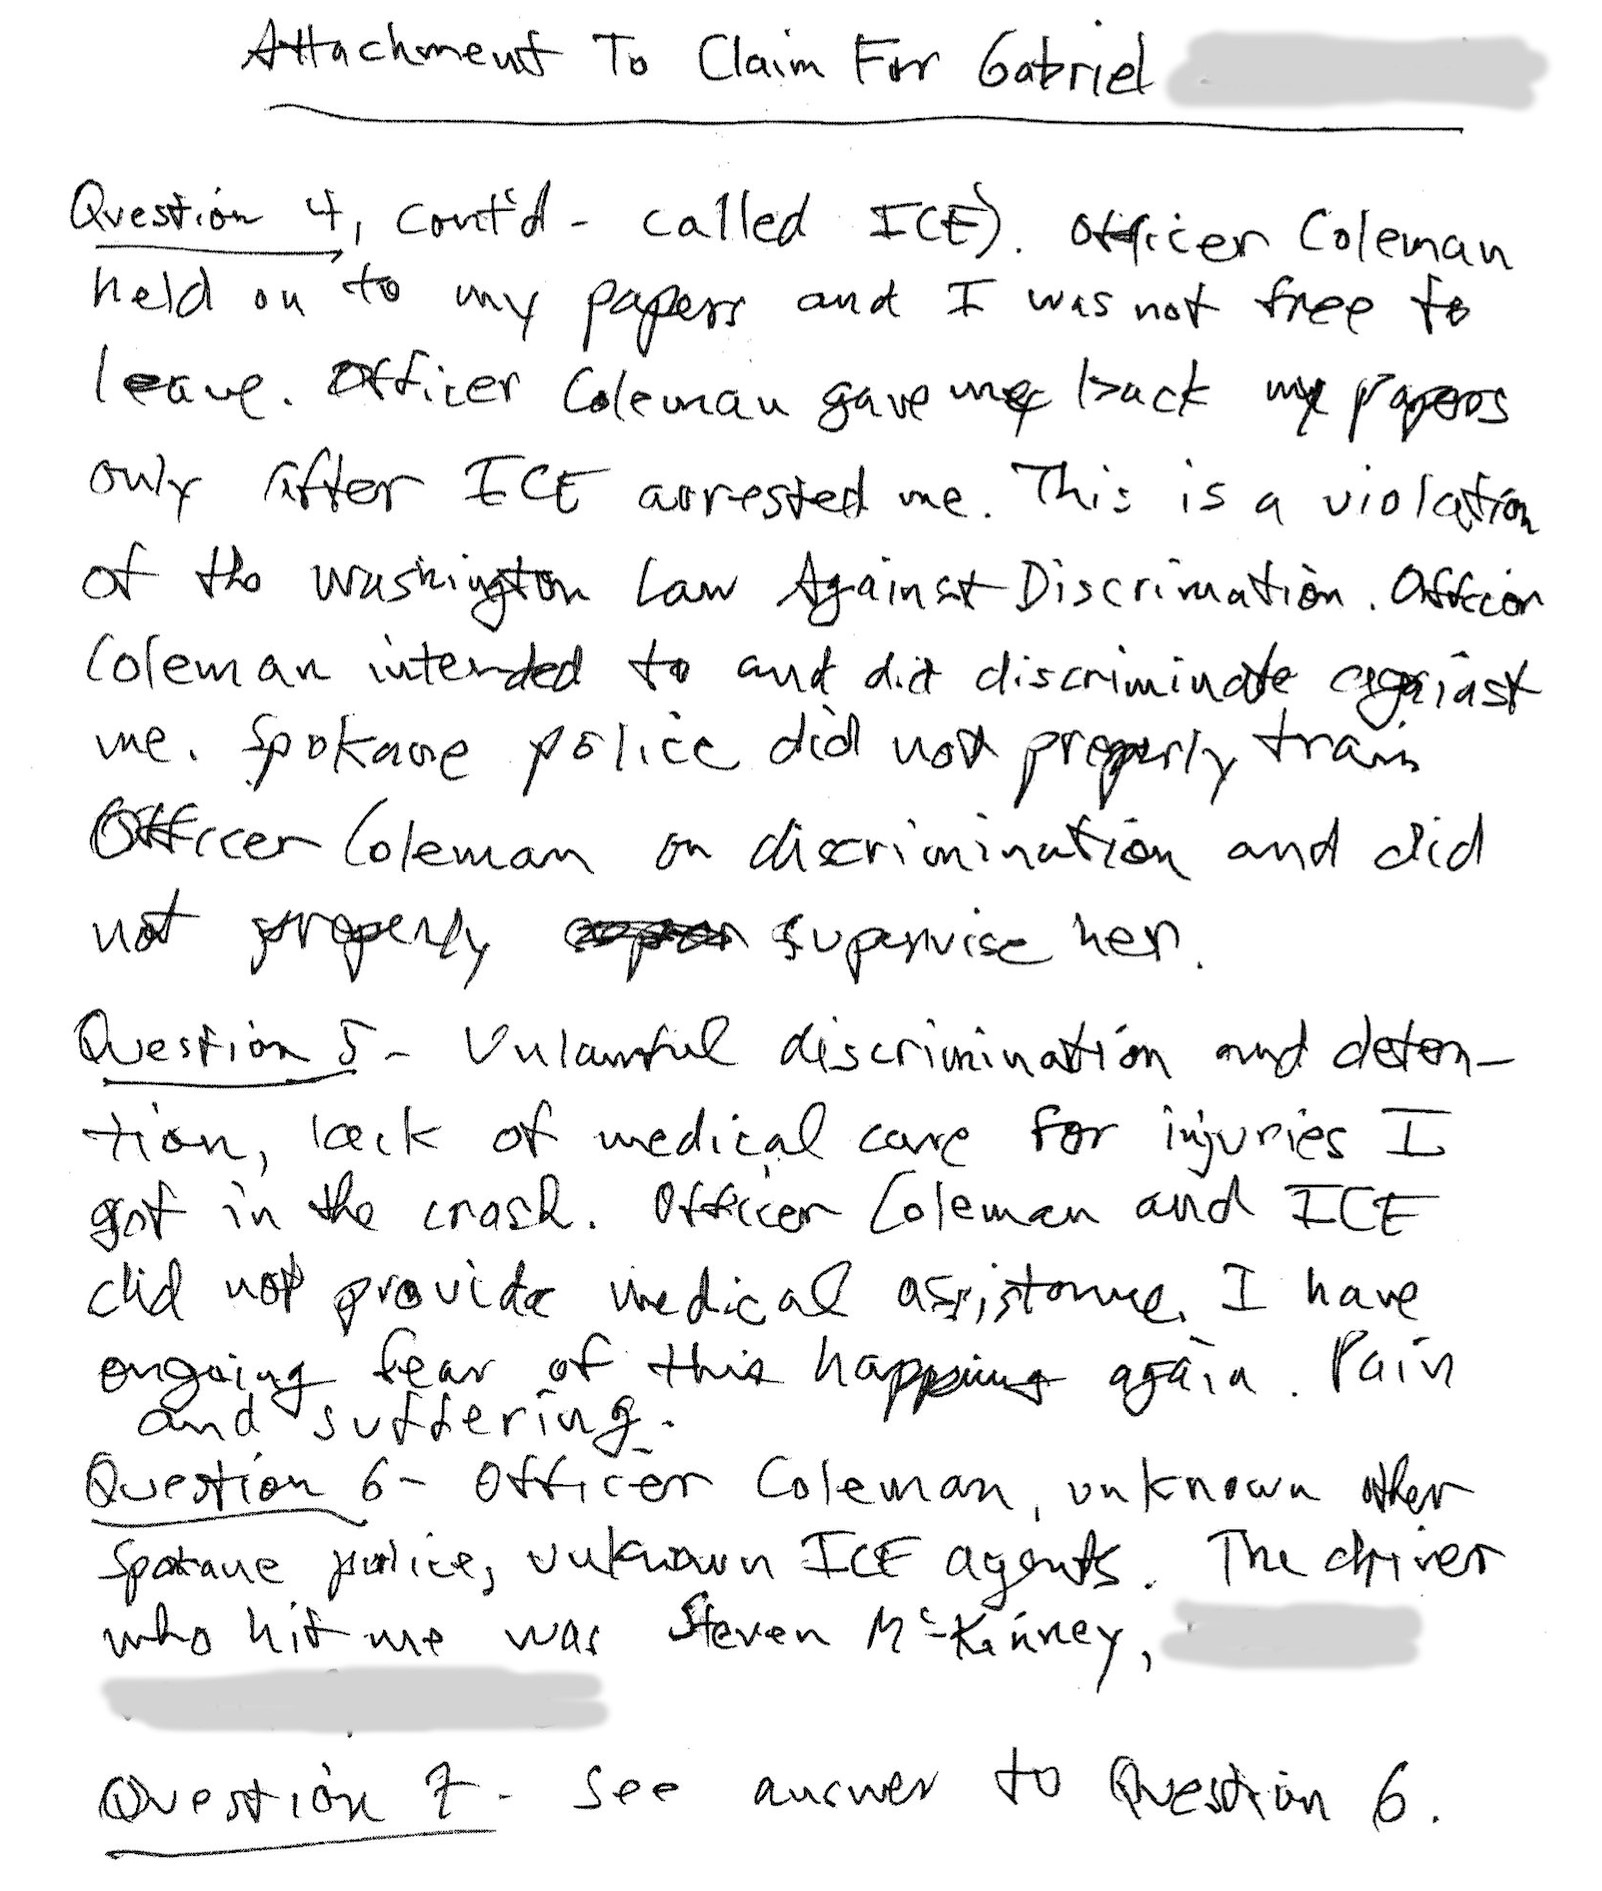 Attachment To Claim For Gabriel
Question 4, cont'd - called ICE). Officer Coleman
held on to my papers and I was not free to
leave. Officer Coleman gave me back my papers
only after ICE arrested me. This is a violation
of the Washington Law Against Discrimation. Officer
Coleman intended to and did discriminate against
me. Spokane police did not properly train
Officer Coleman on discrimination and did
not properly supervise her.
Question 5 - Unlawful discrimination and deten-
tion, lack of medical care for injuries I
got in the crash. Officer Coleman and ICE
did not provide medical assistance. I have
ongoing fear of this happping again. Pain
and suffering.
Question 6 - Officer Coleman, unknown other
Spokane police, unknown ICE agents. The driver
who hit me was Steven McKinney,
Question 7 - See answer to Question 6.